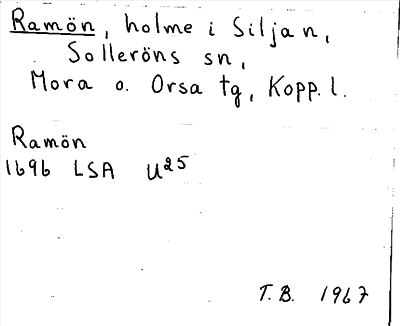 Ramön, holme i Siljan,
Solleröns sn,
Mora o. Orsa tg, Kopp. l.
Ramön
1696 LSA U25
T.B. 1967